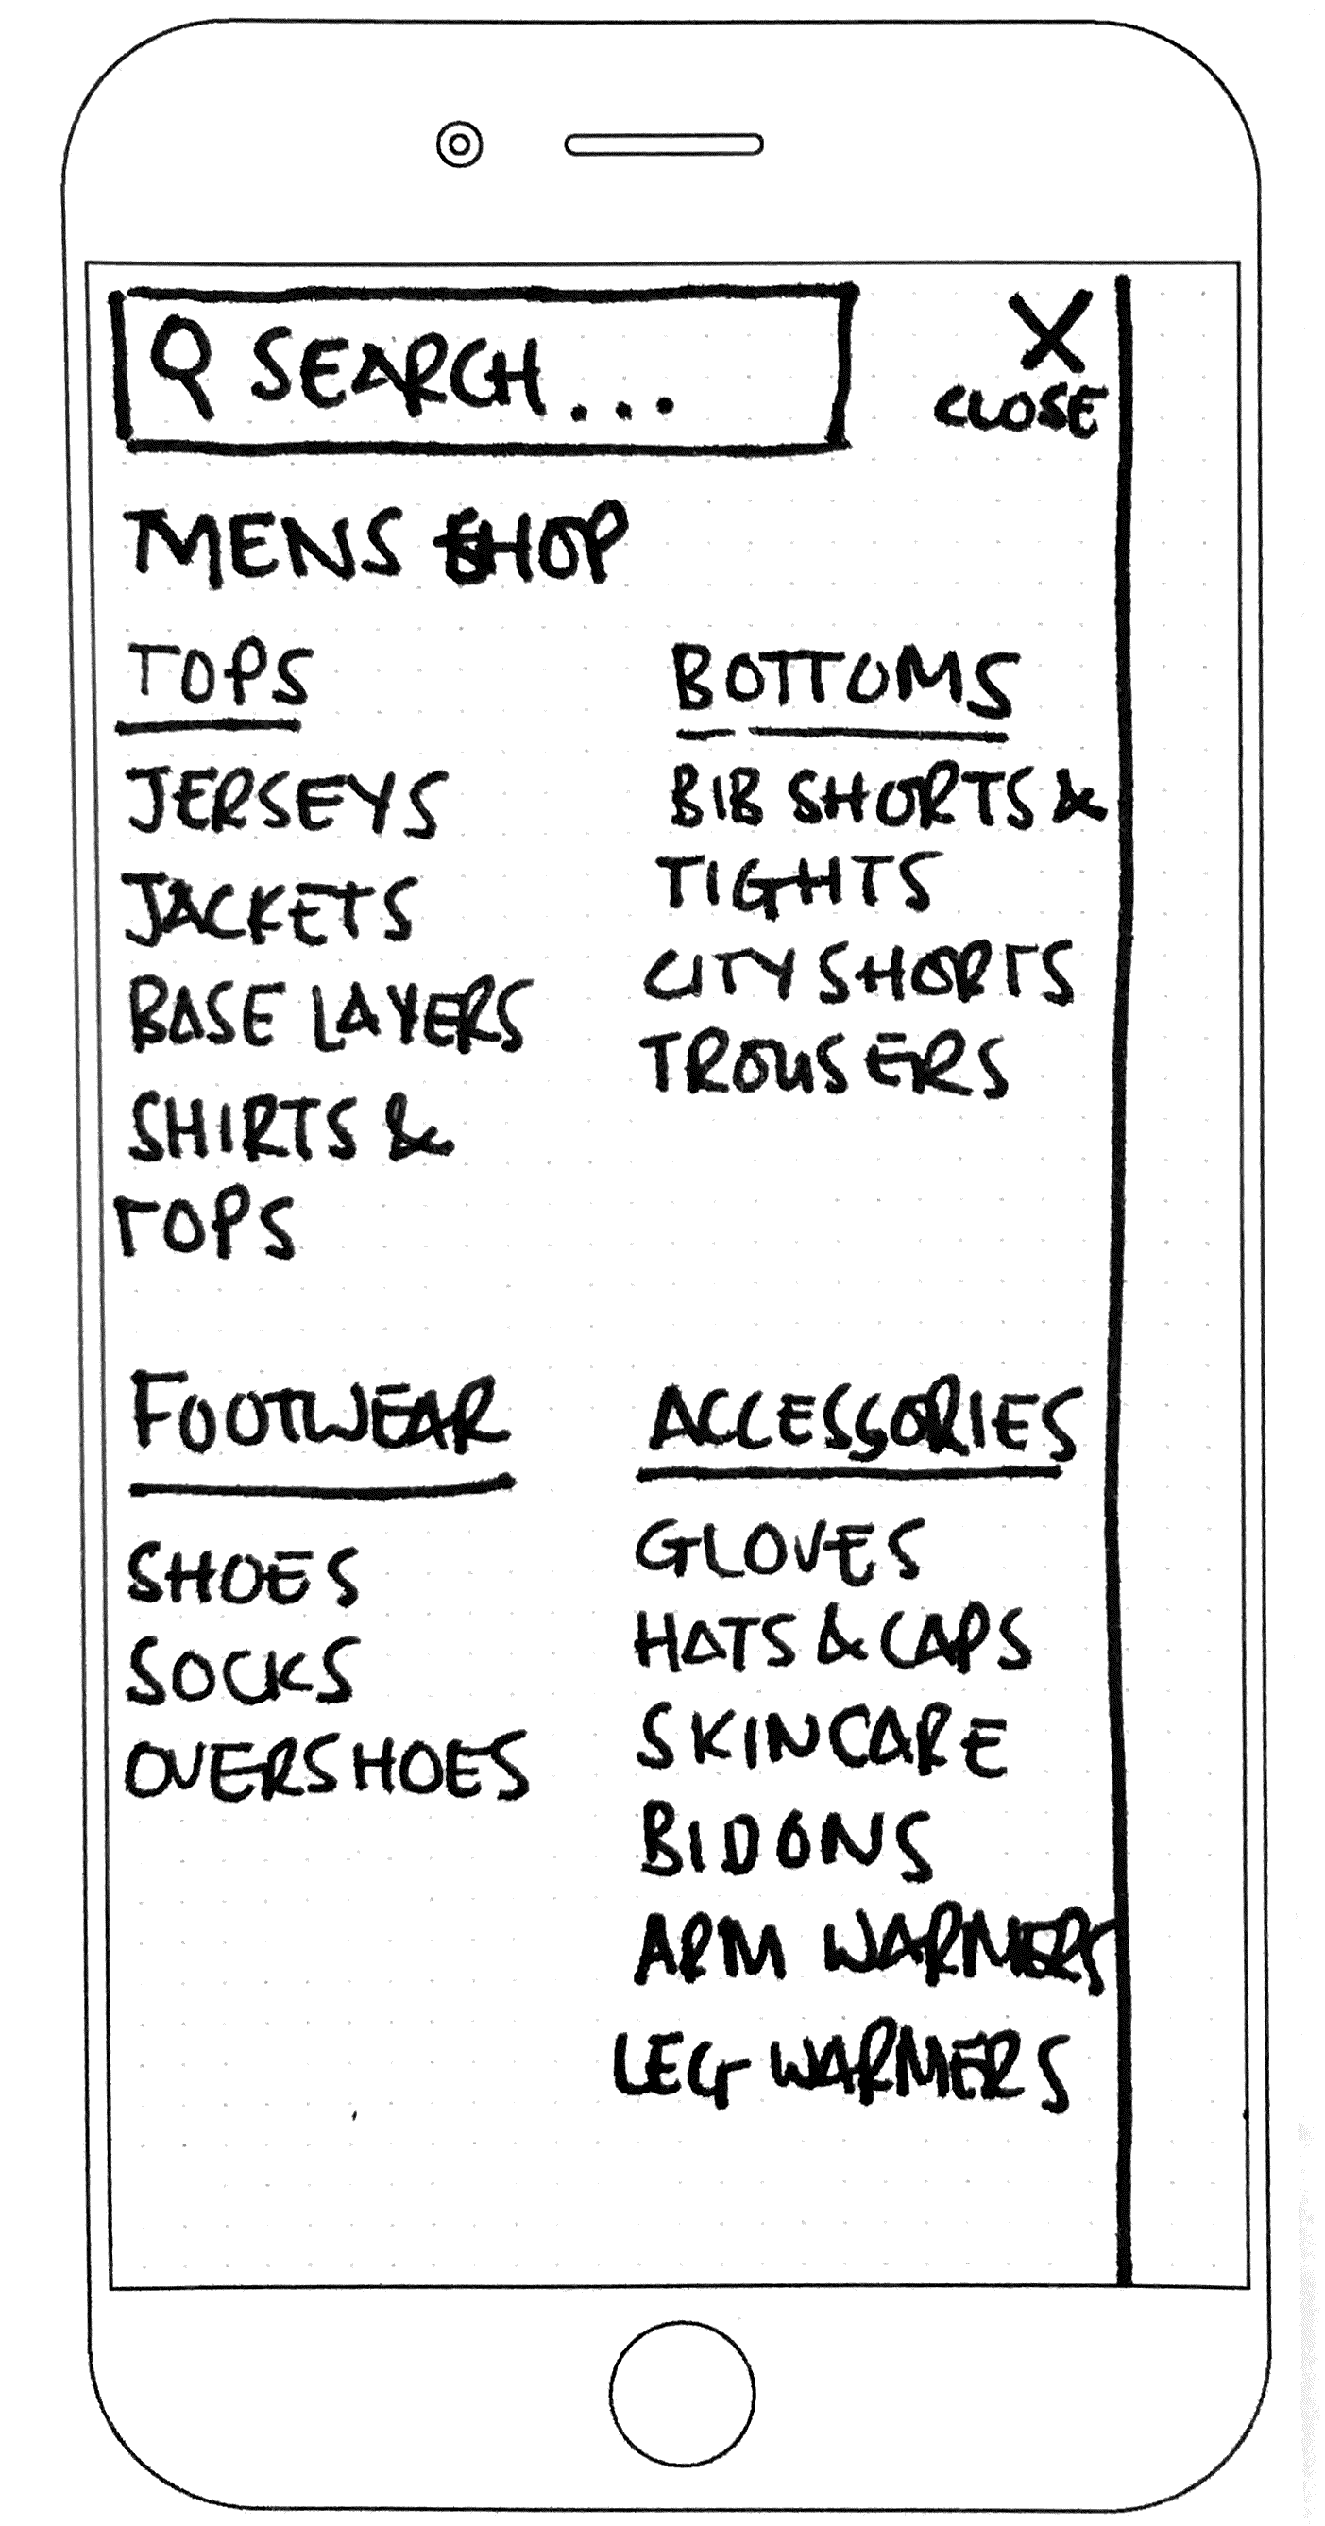 SEARCH...
X
CLOSE
MENS SHOP
TOPS
JERSEYS
JACKETS
BASE LAYERS
SHIRTS &
TOPS
BOTTOMS
BIB SHORTS &
TIGHTS
CITY SHORTS
TROUSERS
FOOTWEAR
SHOES
SOCKS
OVERSHOES
ACCESSORIES
GLOVES
HATS & CAPS
SKINCARE
BIDONS
ARM WARMERS
LEG WARMERS